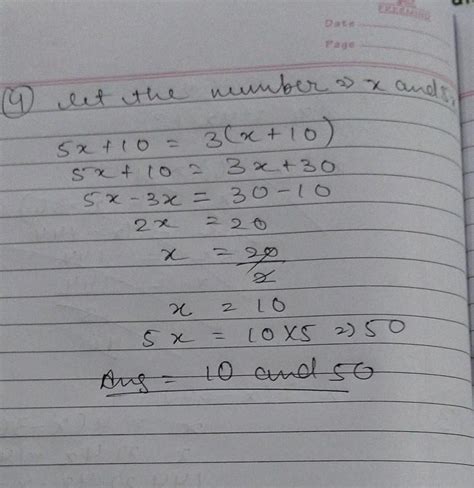 Date
Page
4 let the number => x and 5x
5x + 10 = 3(x + 10)
5x + 10 = 3x + 30
5x - 3x = 30 - 10
2x = 20
x = 20/2
x = 10
5x = 10 x 5 => 50
Ans = 10 and 50